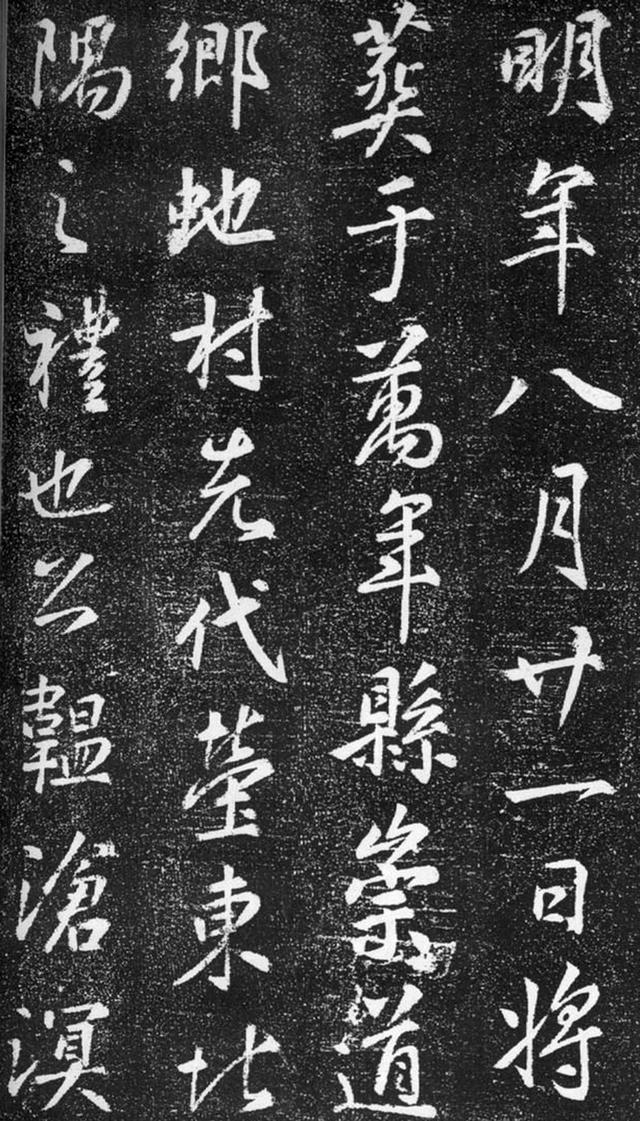 明年八月廿一日将
葬于萬年縣崇道
鄉虵村先代塋東北
隅之禮也公韞滄溟